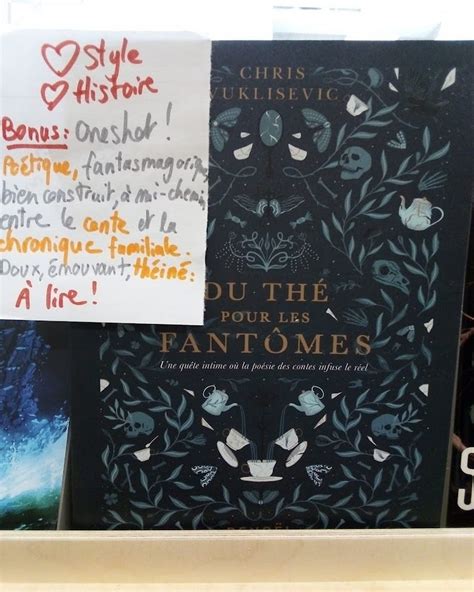 ♡ Style
♡ Histoire
Bonus: Oneshot !
Poétique, fantasmagorique,
bien construit, à mi-chemin
entre le conte et la
chronique familiale.
Doux, émouvant, théiné:
À lire !
CHRIS
VUKLISEVIC
DU THÉ
POUR LES
FANTÔMES
Une quête intime où la poésie des contes infuse le réel
DENOËL
S